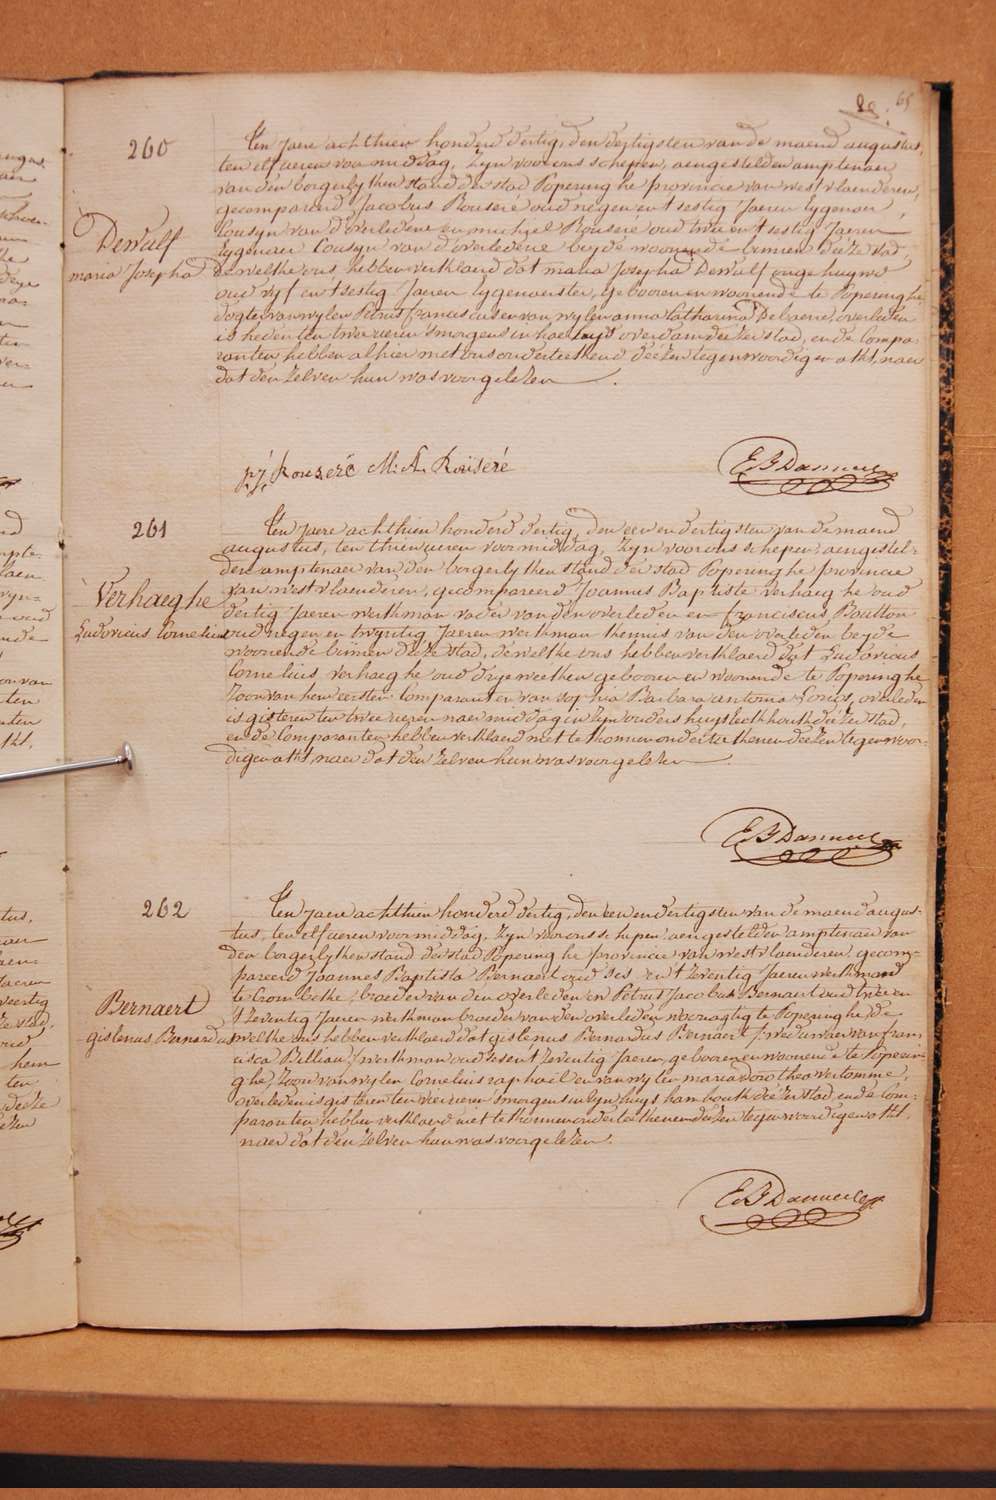 89. 65
260
Dewulf
maria Josepha
Ten jaere achthien honderd dertig, den dertigsten van de maend augustus,
ten elf ueren voormiddag, zyn voor ons schepen, aengestelden amptenaer
van den borgerlyken stand der stad Poperinghe provincie van westvlaenderen,
gecompareerd Jacobus Rouseré oud negen en t'sestig Jaeren
Cousyn van d'overledene en michiel Rouseré oud twee en t'sestig Jaeren
Cousyn van d'overledene beyde woonende binnen deeze stad,
dewelke ons hebben verklaerd dat maria Josepha Dewulf ongehuywd
oud vyf en t'sestig Jaeren eygenaerster, gebooren en woonende te Poperinghe
dogter van wylen Petrus franciscus en van wylen anna Catharina overleden
is heden ten twee ueren smorgens in hae deezer stad, en de Compa-
ranten hebben alhier met ons onderteekend deezen tegenwoordigen akt, naer
dat den zelven hun was voorgelezen.
p: j: Rouseré M: A. Rouseré
261
Verhaeghe
Ludovicus Cornelius
Ten jaere achthien honderd dertig, den een en dertigsten van de maend
augustus, ten thien ueren voormiddag, zyn voor ons schepen, aengestel-
den amptenaer van den borgerlyken stand der stad Poperinghe provincie
van westvlaenderen, gecompareerd Joannes Baptiste verhaeghe oud
dertig Jaeren werkman vader van den overleden en franciscus Boutton
oud negen en twyntig Jaeren werkman kennis van den overleden beyde
woonende binnen deeze stad, dewelke ons hebben verklaerd dat Ludovicus
Cornelius verhaeghe oud drye weeken gebooren en woonende te Poperinghe
Zoon van hem eersten Comparant en van Sophia Barbara antonia overleden
is gisteren ten twee ueren naer middag in zyn ouders huys deezer stad,
en de Comparanten hebben verklaerd niet te konnen onderteekenen deezen tegenwoor-
digen akt, naer dat den zelven hun was voorgelezen.
262
Bernaert
gislenus Bernardus
Ten jaere achthien honderd dertig, den een en dertigsten van de maend augus-
tus, ten elf ueren voormiddag, zyn voor ons schepen, aengestelden amptenaer van
den borgerlyken stand der stad Poperinghe provincie van westvlaenderen, gecom-
pareerd Joannes Baptista Bernaert oud ses en t'zeventig Jaeren werkman
te Crombeke, broeder van den overleden en Petrus Jacobus Bernaert oud twee en
t'zeventig Jaeren werkman broeder van den overleden woonagtig te Poperinghe, de
welke ons hebben verklaerd dat gislenus Bernardus Bernaert /weduwaer van fran-
cisca Billiau/ werkman oud sesent'zeventig Jaeren, gebooren en woonende te Poperin-
ghe, Zoon van wylen Cornelius raphaël en van wylen maria dorothea vertomme,
overleden is gisteren ten vier ueren smorgens in zyn huys deezer stad, en de Com-
paranten hebben verklaerd niet te konnen onderteekenen deezen tegenwoordigen akt,
naer dat den zelven hun was voorgelezen.